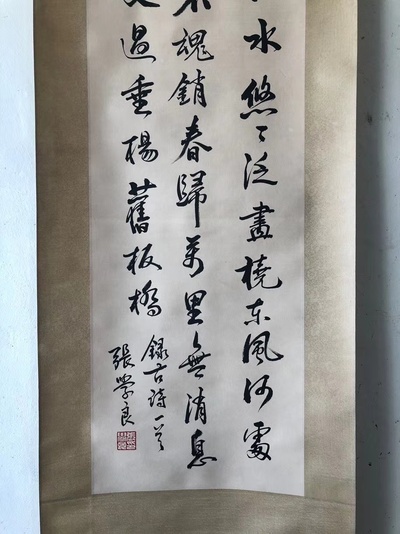 水悠々泛畫橈東風何處
魂銷春歸萬里無消息
過垂楊舊板橋
錄古詩一首
張学良